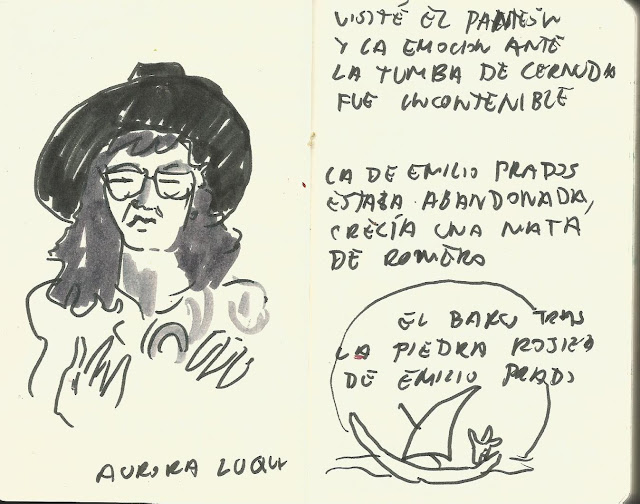 AURORA LUQUE
VISITÉ EL PANTEÓN
Y LA EMOCION ANTE
LA TUMBA DE CERNUDA
FUE INCONTENIBLE
LA DE EMILIO PRADOS
ESTABA ABANDONADA,
CRECÍA UNA MATA
DE ROMERO
EL BARCO TRAS
LA PIEDRA ROJIZA
DE EMILIO PRADOS